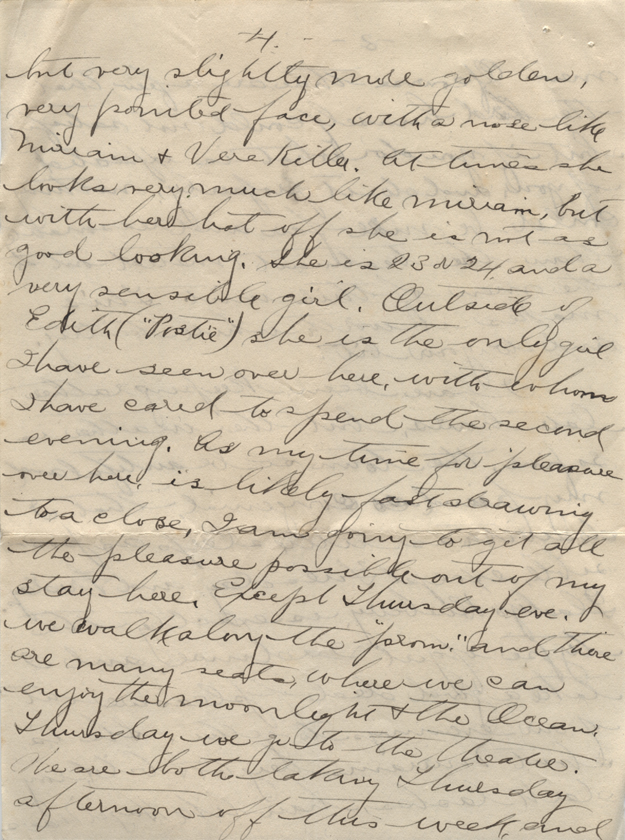 4. -
but very slightly more golden,
very pointed face, with a nose like
Miriam & Vere Killa. At times she
looks very much like Miriam, but
with her hat off she is not as
good looking. She is 23 or 24 and a
very sensible girl. Outside of
Edith ("Postie") she is the only girl
I have seen over here, with whom
I have cared to spend the second
evening. As my time for pleasure
over here, is likely fast drawing
to a close, I am going to get all
the pleasure possible out of my
stay here. Except Thursday eve.
we walk along the "prom." and there
are many seats, where we can
enjoy the moonlight & the Ocean.
Thursday we go to the theatre.
We are both taking Thursday
afternoon off this week, and